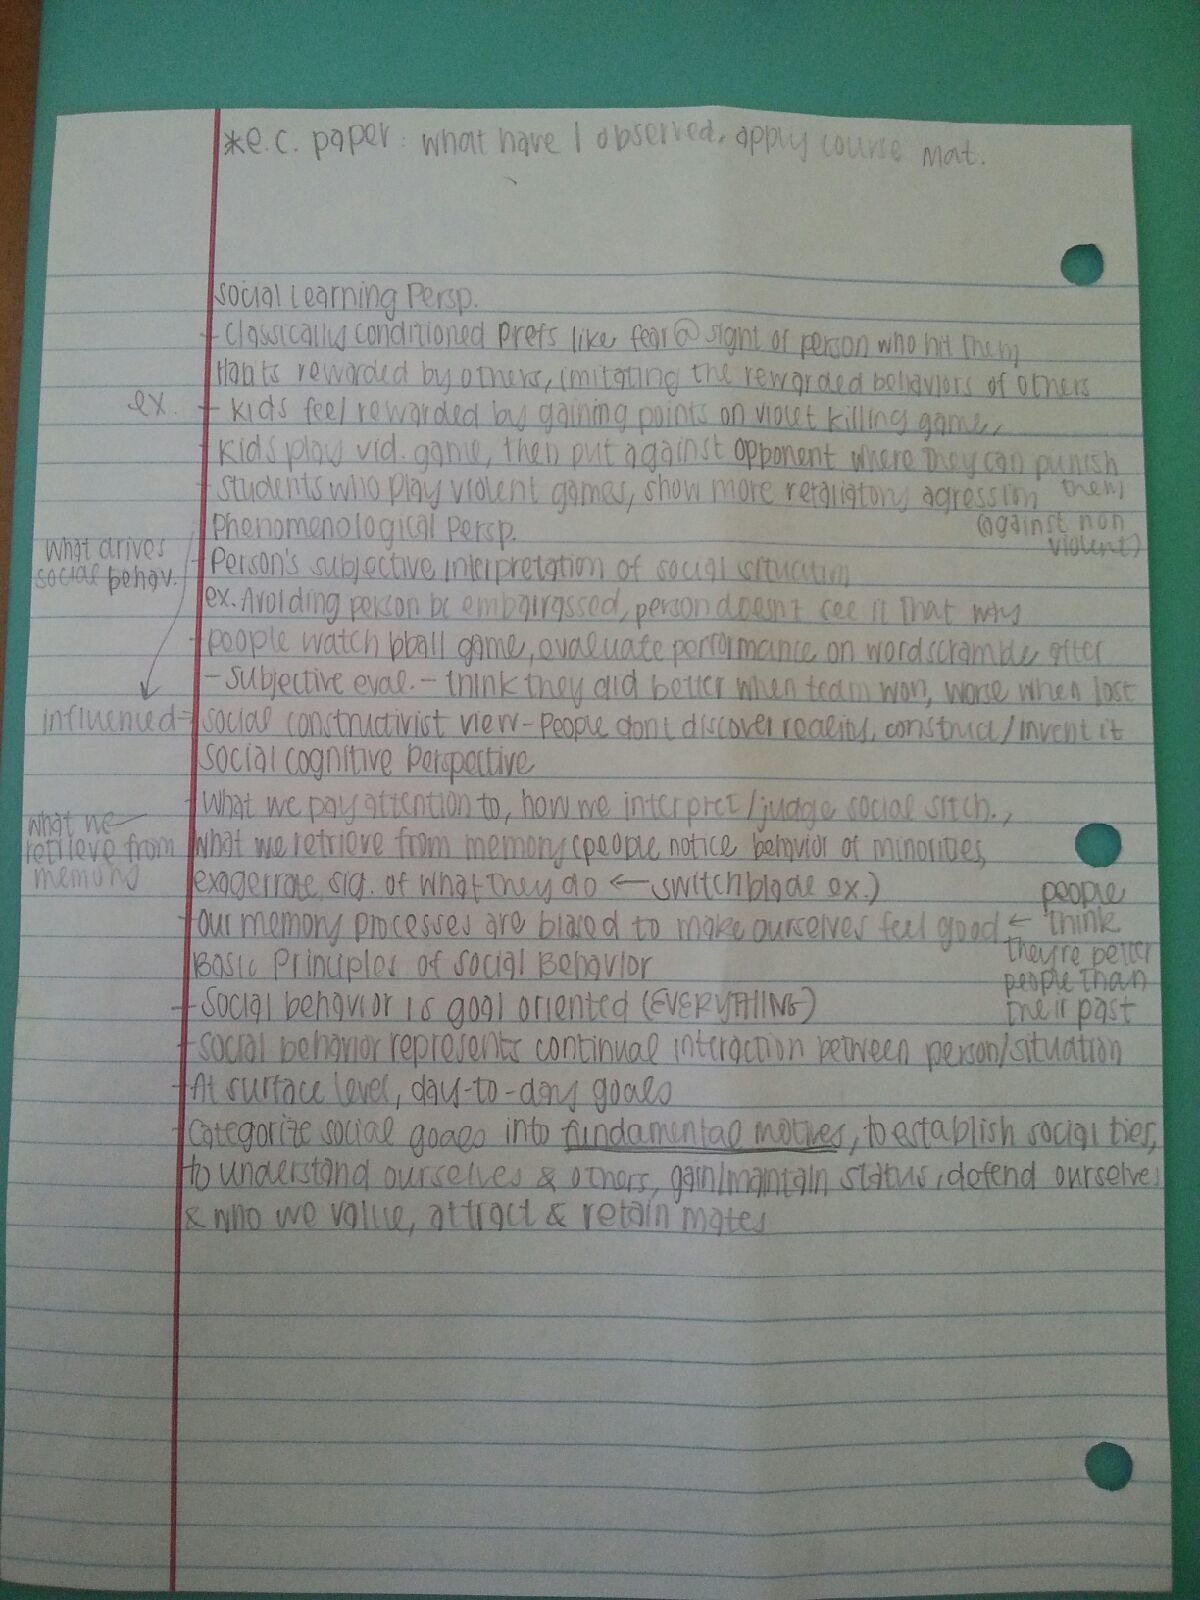 *e.c. paper: what have I observed, apply course mat.
Social Learning Persp.
- Classically conditioned prefs like fear @ sight of person who hit them
Habits rewarded by others, imitating the rewarded behaviors of others
ex. - kids feel rewarded by gaining points on violet killing game,
- kids play vid. game, then put against opponent where they can punish
them
- students who play violent games, show more retaliatory agression
(against non
violent)
Phenomenological Persp.
what drives
social behav.
- Person's subjective interpretation of social situation
ex. Avoiding person bc embarrassed, person doesn't see it that way
- people watch bball game, evaluate performance on wordscramble after
- subjective eval. - think they did better when team won, worse when lost
influenced - social constructivist view - People don't discover reality, construct/invent it
Social Cognitive Perspective
- What we pay attention to, how we interpret/judge social sitch.,
what we
retrieve from
memory
what we retrieve from memory (people notice behavior of minorities,
exagerrate sig. of what they do ← switchblade ex.)
- our memory processes are biased to make ourselves feel good ← people
think
they're better
people than
their past
Basic Principles of Social Behavior
- Social behavior is goal oriented (EVERYTHING)
- Social behavior represents continual interaction between person/situation
- At surface level, day-to-day goals
- Categorize social goals into fundamental motives, to establish social ties,
to understand ourselves & others, gain/maintain status, defend ourselves
& who we value, attract & retain mates